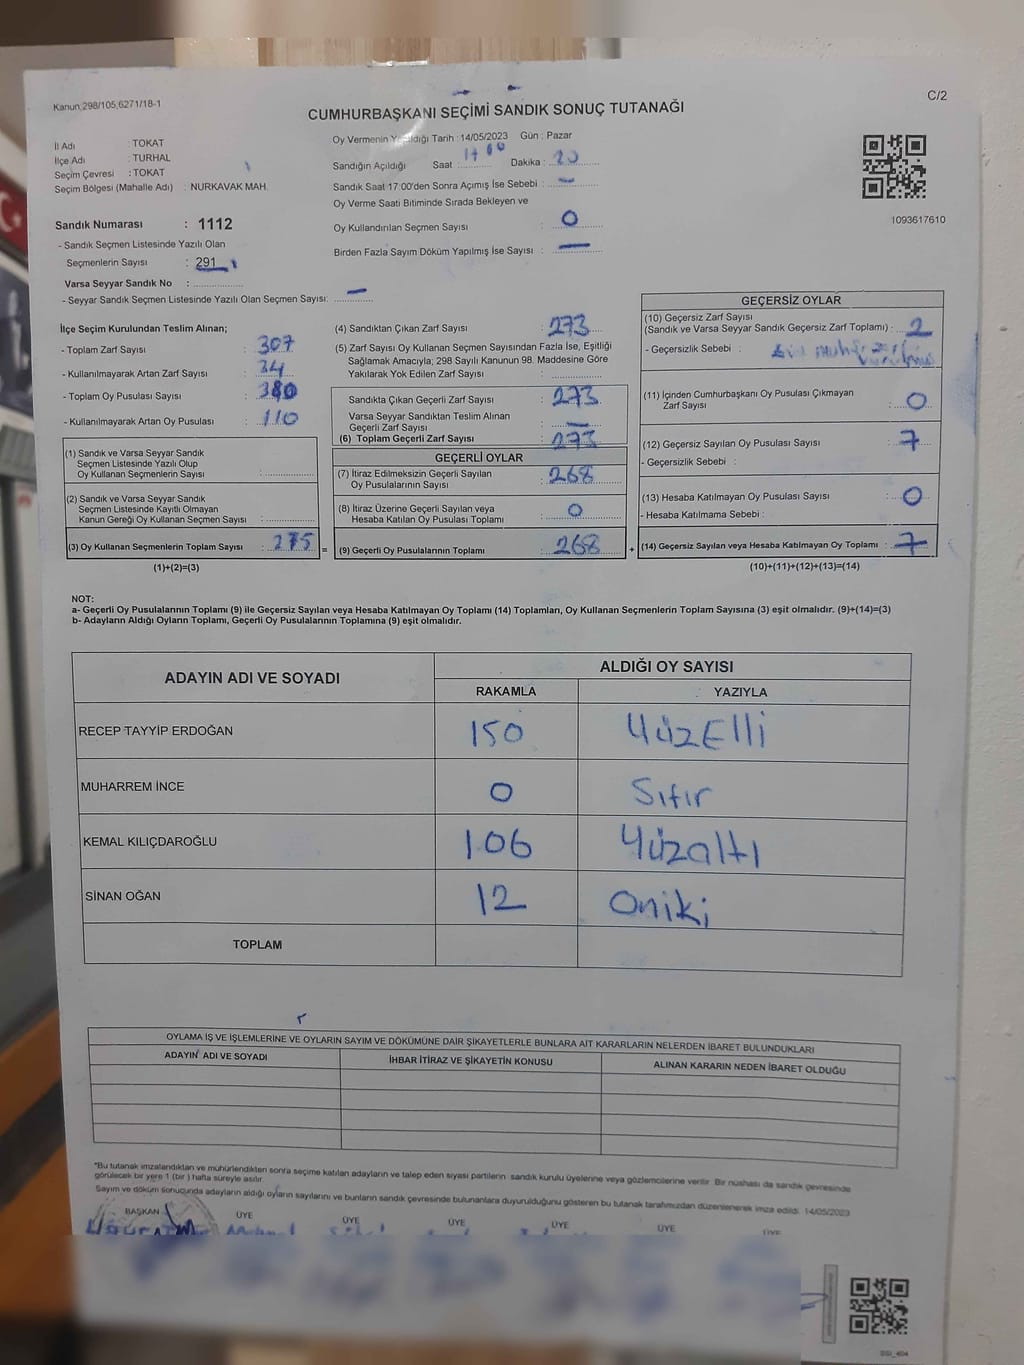 Kanun,298/105,6271/18-1
C/2
CUMHURBAŞKANI SEÇİMİ SANDIK SONUÇ TUTANAĞI
İl Adı : TOKAT
İlçe Adı : TURHAL
Seçim Çevresi : TOKAT
Seçim Bölgesi (Mahalle Adı) : NURKAVAK MAH.
Sandık Numarası : 1112
- Sandık Seçmen Listesinde Yazılı Olan
Seçmenlerin Sayısı : 291
Varsa Seyyar Sandık No :
- Seyyar Sandık Seçmen Listesinde Yazılı Olan Seçmen Sayısı: —
Oy Vermenin Yapıldığı Tarih : 14/05/2023 Gün : Pazar
Sandığın Açıldığı Saat : 17 00 Dakika : 20
Sandık Saat 17:00'den Sonra Açımış İse Sebebi : —
Oy Verme Saati Bitiminde Sırada Bekleyen ve
Oy Kullandırılan Seçmen Sayısı : 0
Birden Fazla Sayım Döküm Yapılmış İse Sayısı : —
1093617610
İlçe Seçim Kurulundan Teslim Alınan;
- Toplam Zarf Sayısı : 307
- Kullanılmayarak Artan Zarf Sayısı : 34
- Toplam Oy Pusulası Sayısı : 380
- Kullanılmayarak Artan Oy Pusulası : 110
(1) Sandık ve Varsa Seyyar Sandık
Seçmen Listesinde Yazılı Olup
Oy Kullanan Seçmenlerin Sayısı :
(2) Sandık ve Varsa Seyyar Sandık
Seçmen Listesinde Kayıtlı Olmayan
Kanun Gereği Oy Kullanan Seçmen Sayısı :
(3) Oy Kullanan Seçmenlerin Toplam Sayısı : 275 =
(1)+(2)=(3)
(4) Sandıktan Çıkan Zarf Sayısı : 273
(5) Zarf Sayısı Oy Kullanan Seçmen Sayısından Fazla İse, Eşitliği
Sağlamak Amacıyla; 298 Sayılı Kanunun 98. Maddesine Göre
Yakılarak Yok Edilen Zarf Sayısı :
Sandıkta Çıkan Geçerli Zarf Sayısı : 273
Varsa Seyyar Sandıktan Teslim Alınan
Geçerli Zarf Sayısı : —
(6) Toplam Geçerli Zarf Sayısı : 273
GEÇERLİ OYLAR
(7) İtiraz Edilmeksizin Geçerli Sayılan
Oy Pusulalarının Sayısı : 268
(8) İtiraz Üzerine Geçerli Sayılan veya
Hesaba Katılan Oy Pusulası Toplamı : 0
(9) Geçerli Oy Pusulalarının Toplamı : 268 +
GEÇERSİZ OYLAR
(10) Geçersiz Zarf Sayısı
(Sandık ve Varsa Seyyar Sandık Geçersiz Zarf Toplamı) : 2
- Geçersizlik Sebebi :
(11) İçinden Cumhurbaşkanı Oy Pusulası Çıkmayan
Zarf Sayısı : 0
(12) Geçersiz Sayılan Oy Pusulası Sayısı : 7
- Geçersizlik Sebebi :
(13) Hesaba Katılmayan Oy Pusulası Sayısı : 0
- Hesaba Katılmama Sebebi :
(14) Geçersiz Sayılan veya Hesaba Katılmayan Oy Toplamı : 7
(10)+(11)+(12)+(13)=(14)
NOT:
a- Geçerli Oy Pusulalarının Toplamı (9) ile Geçersiz Sayılan veya Hesaba Katılmayan Oy Toplamı (14) Toplamları, Oy Kullanan Seçmenlerin Toplam Sayısına (3) eşit olmalıdır. (9)+(14)=(3)
b- Adayların Aldığı Oyların Toplamı, Geçerli Oy Pusulalarının Toplamına (9) eşit olmalıdır.
ADAYIN ADI VE SOYADI ALDIĞI OY SAYISI
RAKAMLA YAZIYLA
RECEP TAYYİP ERDOĞAN 150 YüzElli
MUHARREM İNCE 0 Sıfır
KEMAL KILIÇDAROĞLU 106 Yüzaltı
SİNAN OĞAN 12 Oniki
TOPLAM
OYLAMA İŞ VE İŞLEMLERİNE VE OYLARIN SAYIM VE DÖKÜMÜNE DAİR ŞİKAYETLERLE BUNLARA AİT KARARLARIN NELERDEN İBARET BULUNDUKLARI
ADAYIN ADI VE SOYADI İHBAR İTİRAZ VE ŞİKAYETİN KONUSU ALINAN KARARIN NEDEN İBARET OLDUĞU
*Bu tutanak imzalandıktan ve mühürlendikten sonra seçime katılan adayların ve talep eden siyasi partilerin sandık kurulu üyelerine veya gözlemcilerine verilir. Bir nüshası da sandık çevresinde
görülecek bir yere 1 (bir ) hafta süreyle asılır.
Sayım ve döküm sonucunda adayların aldığı oyların sayılarını ve bunların sandık çevresinde bulunanlara duyurulduğunu gösteren bu tutanak tarafımızdan düzenlenerek imza edildi. 14/05/2023
BAŞKAN ÜYE ÜYE ÜYE ÜYE ÜYE ÜYE